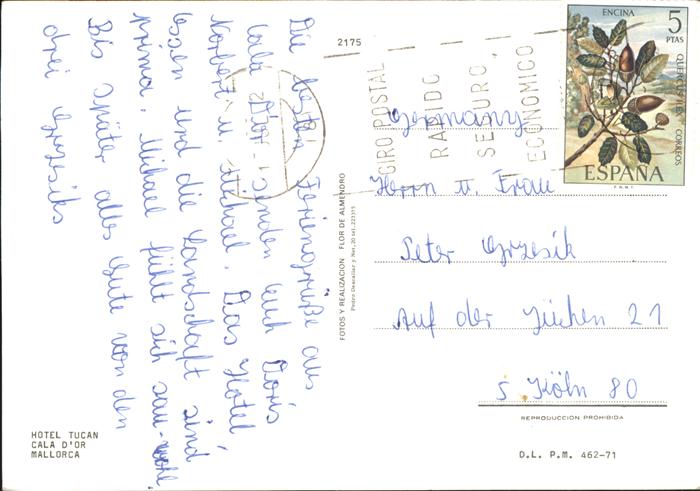 Die besten Feriengrüße aus
Cala d'or senden euch Doris
Norbert u. Michael. Das Hotel
Essen und die Landschaft sind
prima. Mihael fühlt sich sau-wohl.
Bis später alles Gute von den
drei Grzesiks
HOTEL TUCAN
CALA D'OR
MALLORCA
2175
FOTOS Y REALIZACION FLOR DE ALMENDRO
Pedro Descallar y Net, 20 tel. 223315
GIRO POSTAL
RAPIDO
SEGURO,
ECONOMICO
ENCINA
5
PTAS
CORREOS
ESPAÑA
F.N.M.T.
Germany
Herrn u. Frau
Peter Grzesik
Auf der Jüchen 21
5 Köln 80
REPRODUCCION PROHIBIDA
D.L. P.M. 462-71